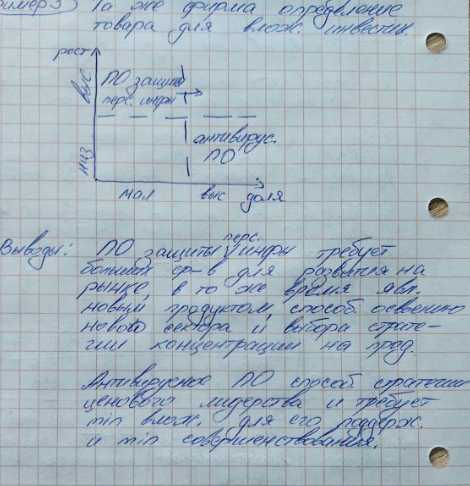 Пример 3) Та же фирма определение
товара для влож. инвестиц.
рост
выс
ПО защиты
перс. инфы
низ
антивирус.
ПО
мал выс доля
Выводы: ПО защиты перс. инфы требует
больших ср-в для развития на
рынке, в то же время явл.
новым продуктом, способ. освоению
нового сектора и выбора страте-
гии концентрации на прод.
Антивирусное ПО способ. стратегии
ценового лидерства и требует
min влож. для его поддерж.
и min совершенствования.